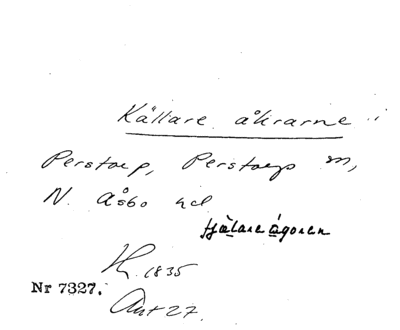 Källare åkrarne i
Perstorp, Perstorps sn,
N. Åsbo hd
tjälareågoren
H. 1835
Nr 7327.
Ant 27.